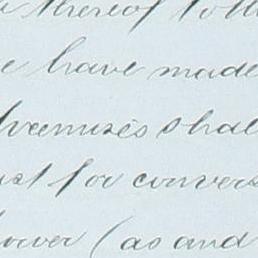 thereof to th
have made
Premises shal
for convers
(as and